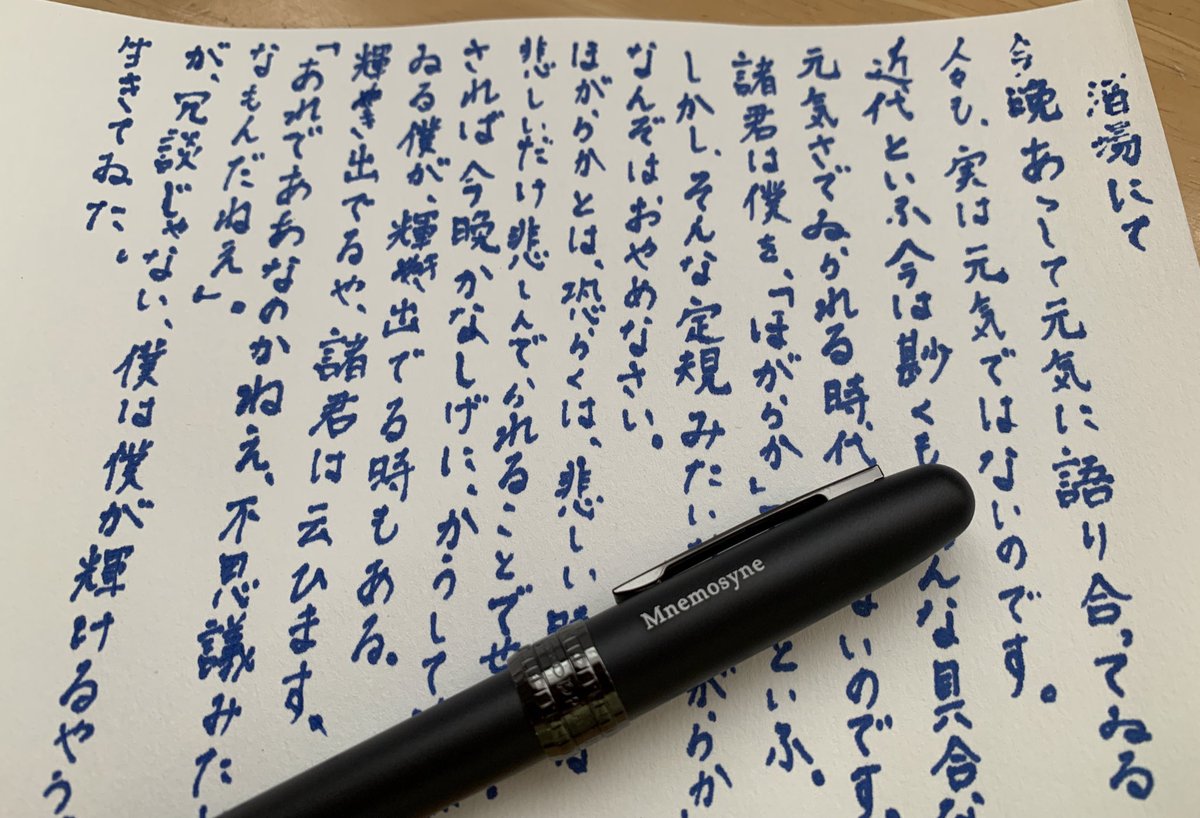 酒場にて
今晩あゝして元気に語り合ってゐる
人々も、実は元気ではないのです。
近代といふ今は尠くも んな具合な
元気さでゐられる時代 ないのです。
諸君は僕を、「ほがらか」 といふ。
しかし、そんな定規みたい がらか
なんぞはおやめなさい。
ほがらかとは、恐らくは、悲しい時
悲しいだけ悲しんでられることでせ 。
されば今晩かなしげに、かうして
ゐる僕が、輝やき出でる時もある。
輝やき出でるや、諸君は云ひます、
「あれでああなのかねえ、不思議みた
なもんだねえ」。
が、冗談じゃない、僕は僕が輝けるやう
生きてゐた。
Mnemosyne